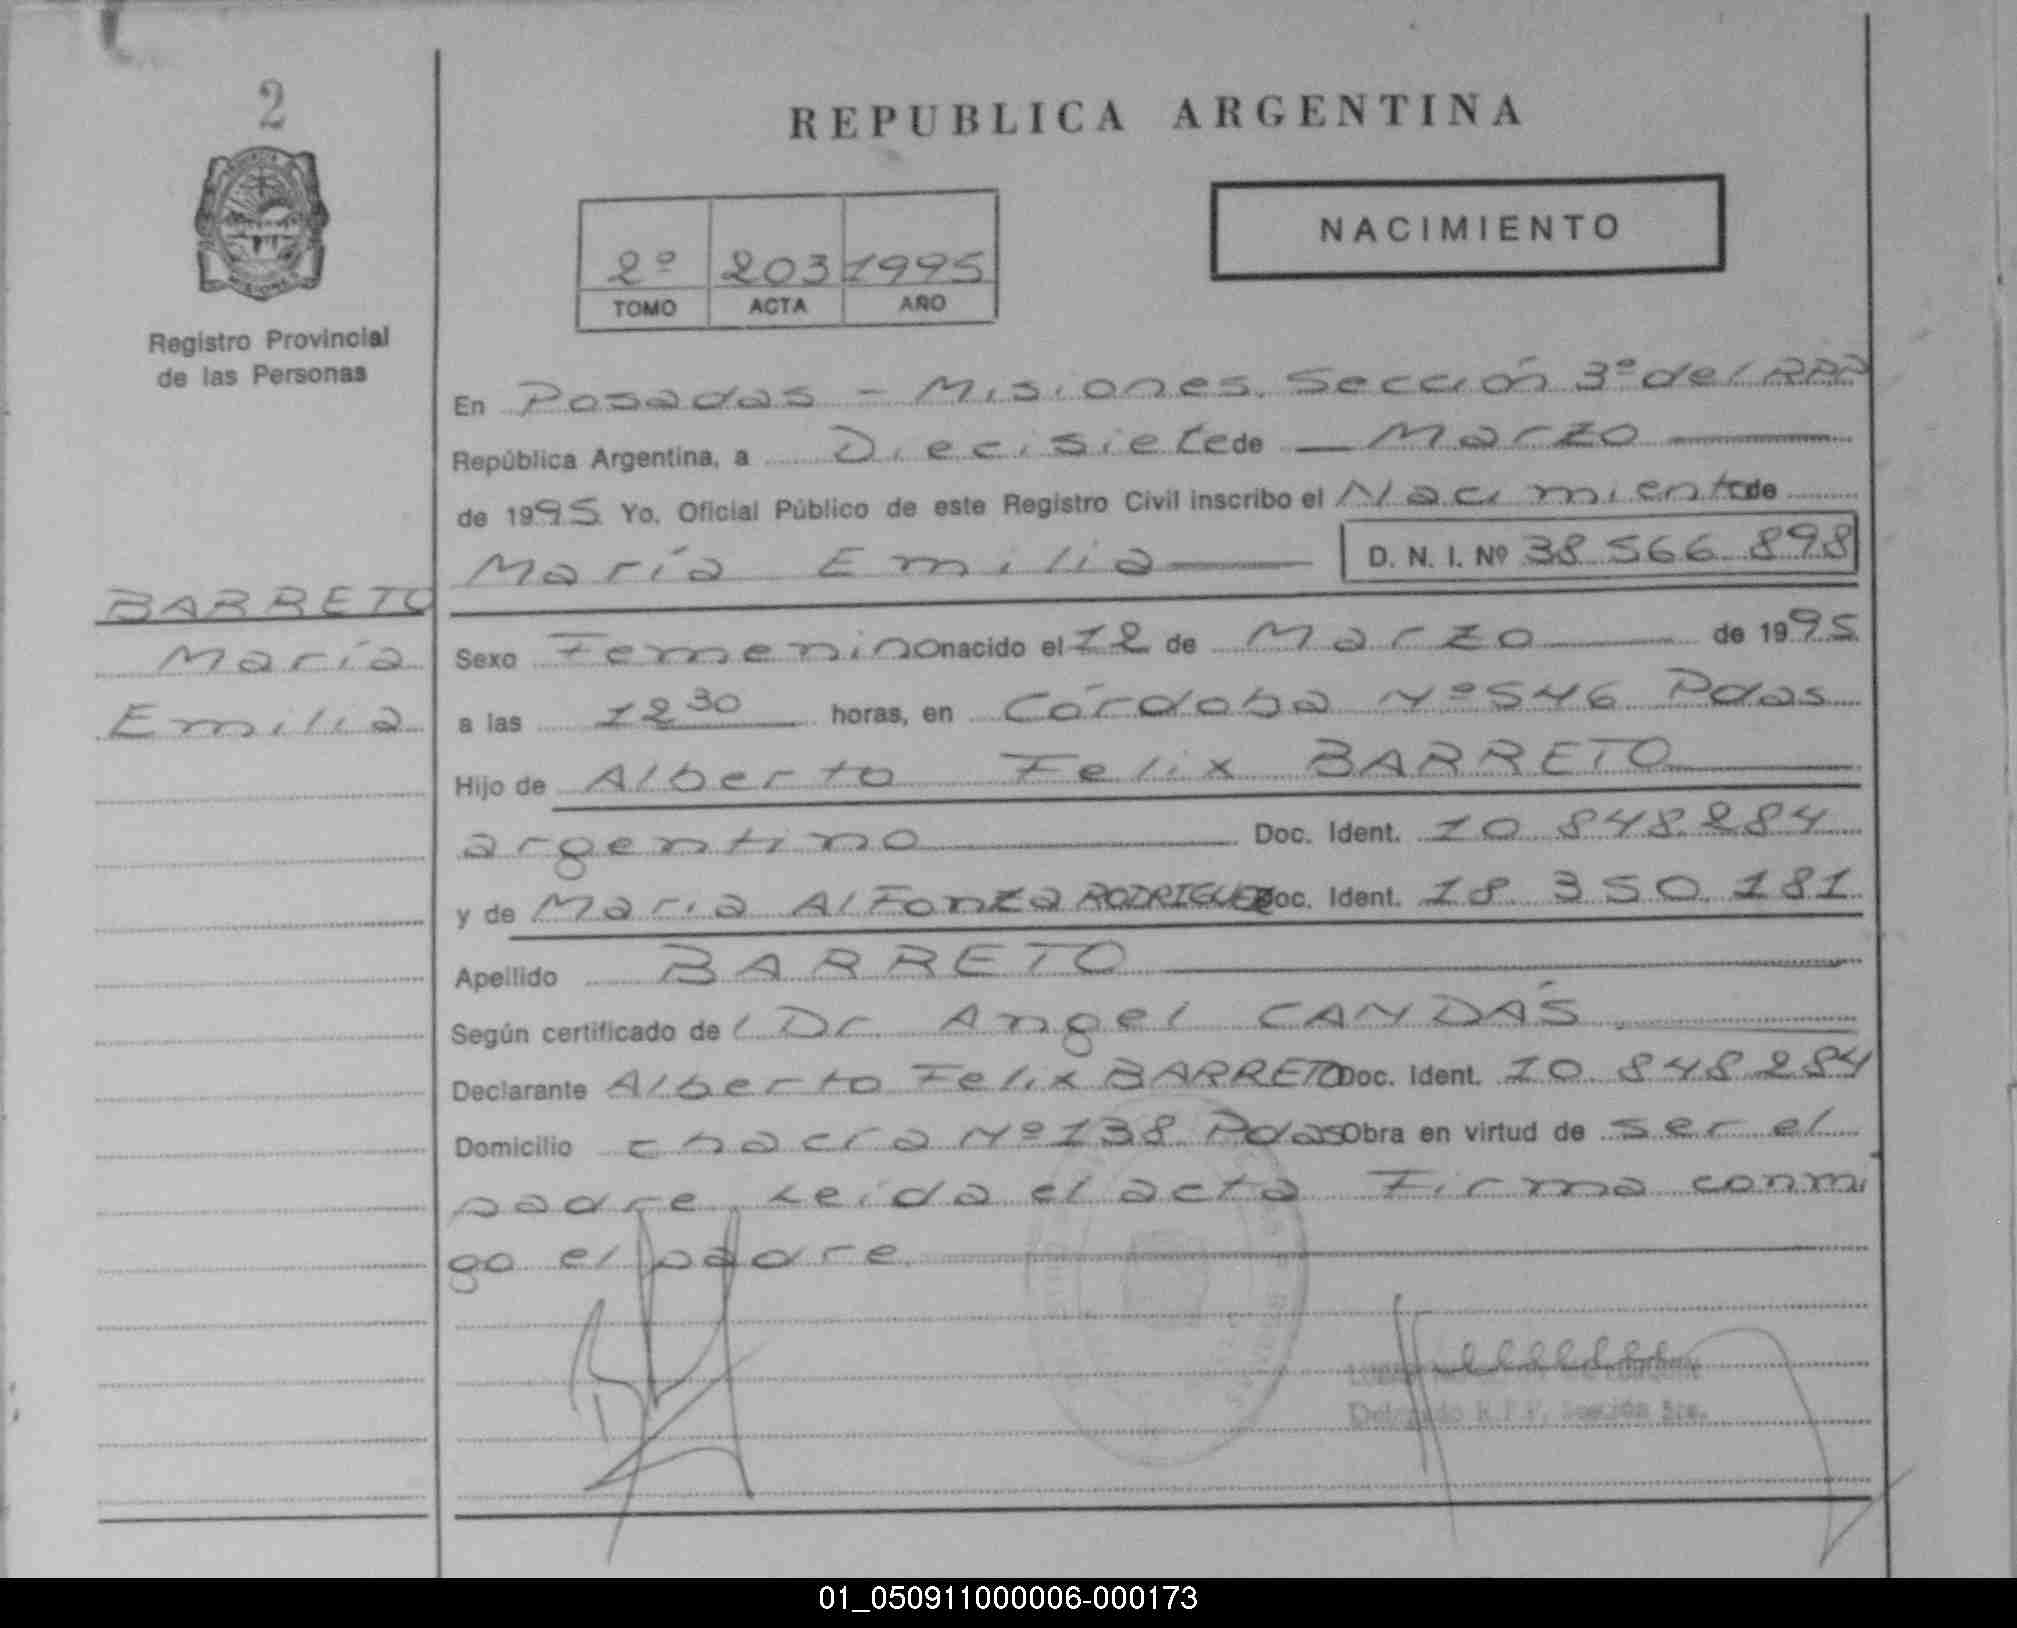 2
REPUBLICA ARGENTINA
NACIMIENTO
2º 203 1995
TOMO ACTA AÑO
Registro Provincial
de las Personas
En Posadas - Misiones. Sección 3º del RPP
República Argentina, a Diecisiete de Marzo
de 1995 Yo. Oficial Público de este Registro Civil inscribo el Nacimiento de
María Emilia D. N. I. Nº 38 566 898
BARRETO
María
Emilia
Sexo Femenino nacido el 12 de Marzo de 1995
a las 12 30 horas, en Córdoba Nº 546 Pdas
Hijo de Alberto Felix BARRETO
argentino Doc. Ident. 10 848 284
y de Maria Alfonza RODRIGUEZ Doc. Ident. 18 350 181
Apellido BARRETO
Según certificado del Dr Angel CANDÁS
Declarante Alberto Felix BARRETO Doc. Ident. 10 848 284
Domicilio chacra Nº 138 Pdas Obra en virtud de ser el
padre Leída el acta Firma conmi
go el padre
R.P.P. Sección 3ra.
01_050911000006-000173